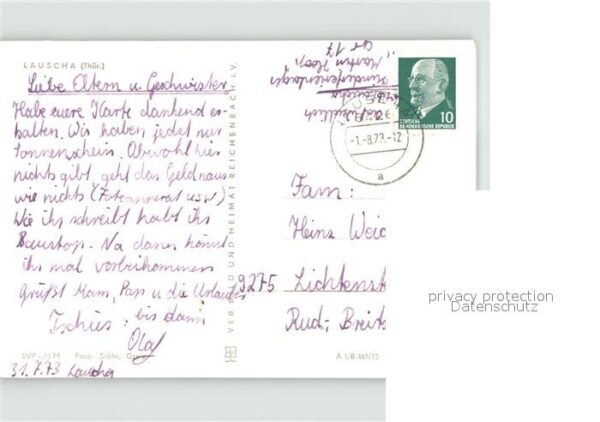 LAUSCHA (Thür.)
Liebe Eltern u. Geschwister
Habe eure Karte dankend er-
halten. Wir haben jetzt nur
Sonnenschein. Obwohl hier
nichts gibt geht das Geld raus
wie nichts (Fotoapperat usw)
Wie ihr schreibt habt ihr
Baustop. Na dann könnt
ihr mal vorbeikommen
Grüßt Mam, Pap u die Urlauber
Tschüs bis dann
Olaf
EVP -,15 M Foto: Stöhr,
31.7.73 Lauscha
VEB BILD UND HEIMAT REICHENBACH I.V.
A 1/B 465/73
Kinderferienlager
"Martin Hoop"
Gr 17
10
DEUTSCHE
DEMOKRATISCHE REPUBLIK
-1.-8.73.-12
a
Fam:
Heinz Weid
9275 Lichtenst
Rud.- Breits
privacy protection
Datenschutz